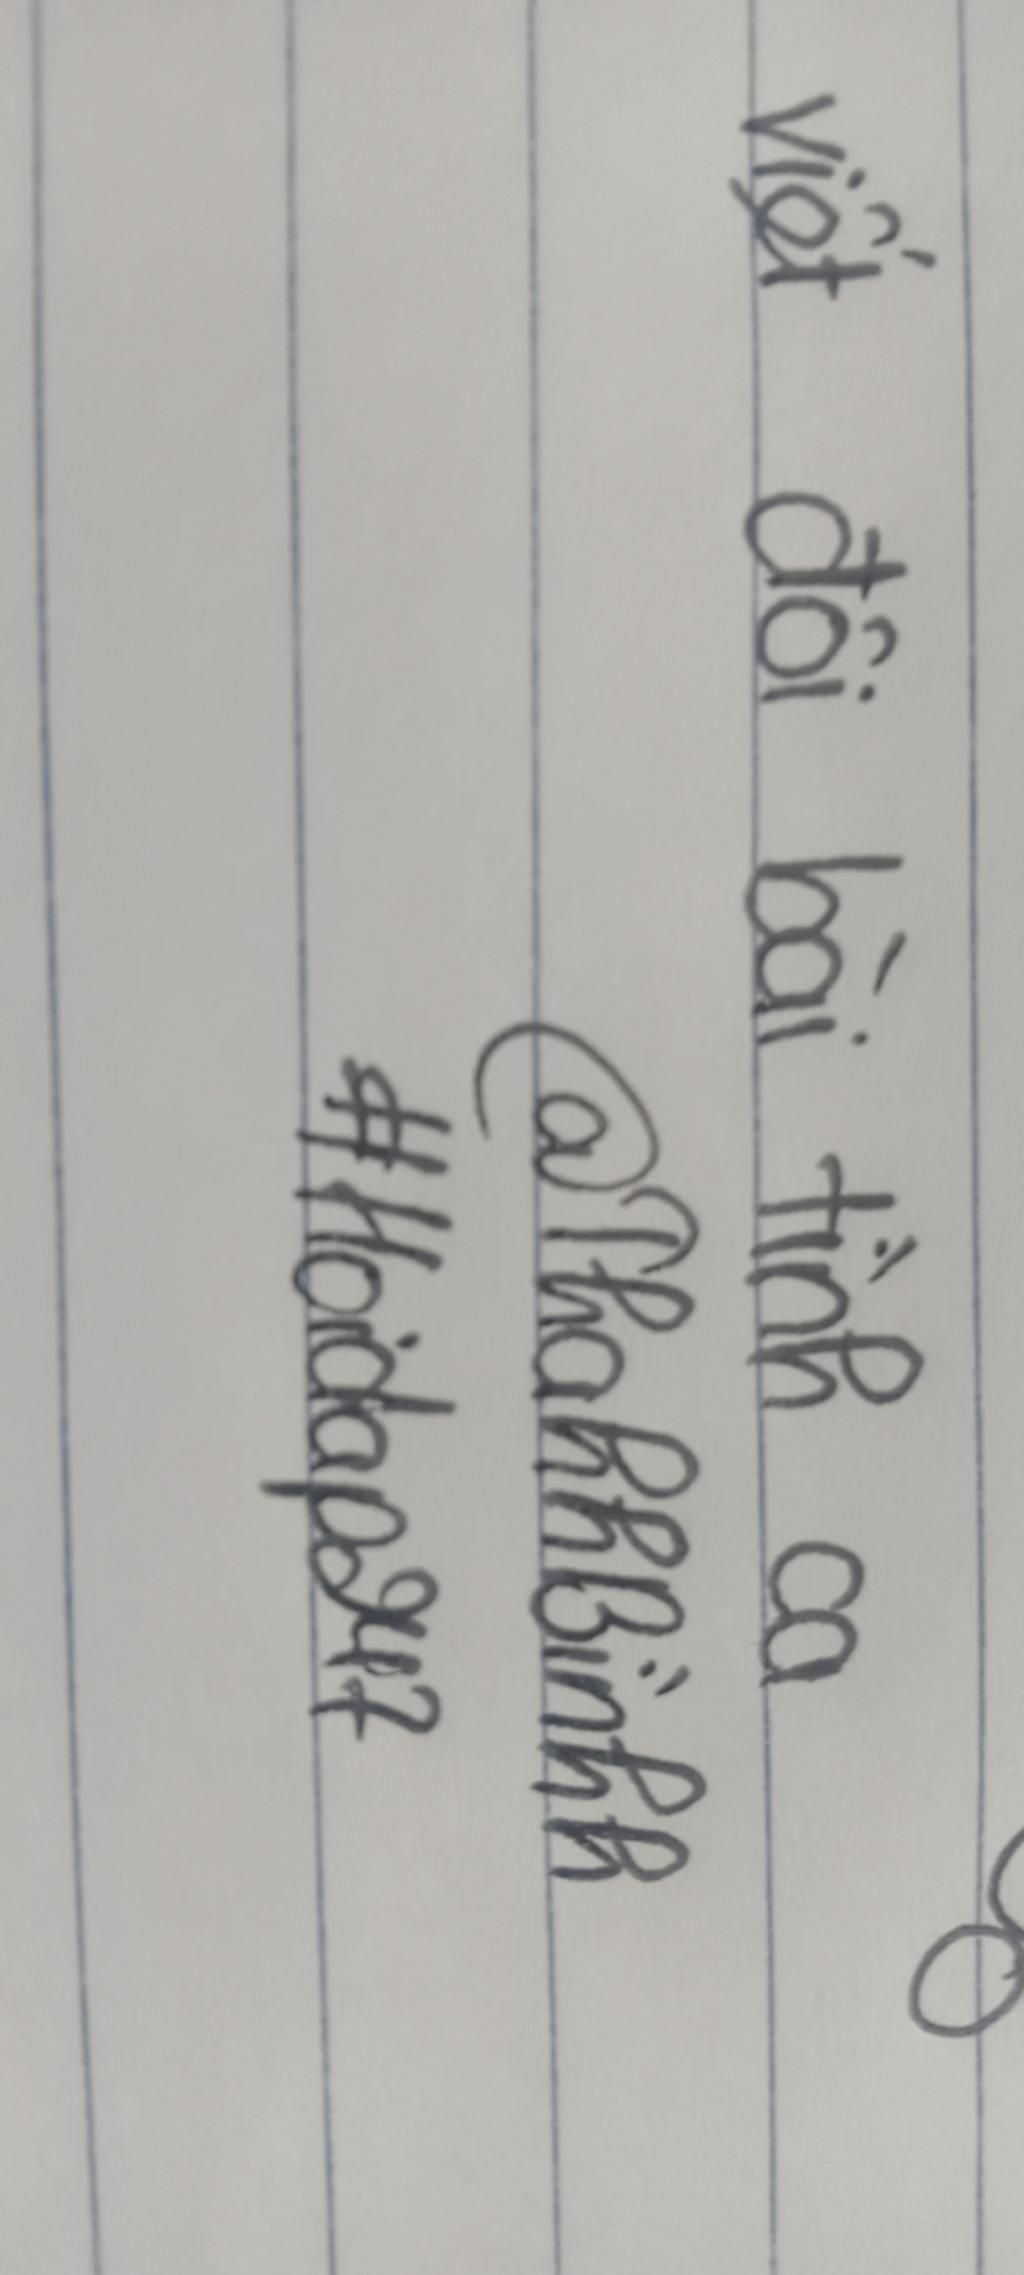 viết đôi bài tình ca
@ThahhBìnhh
#Hoidap247